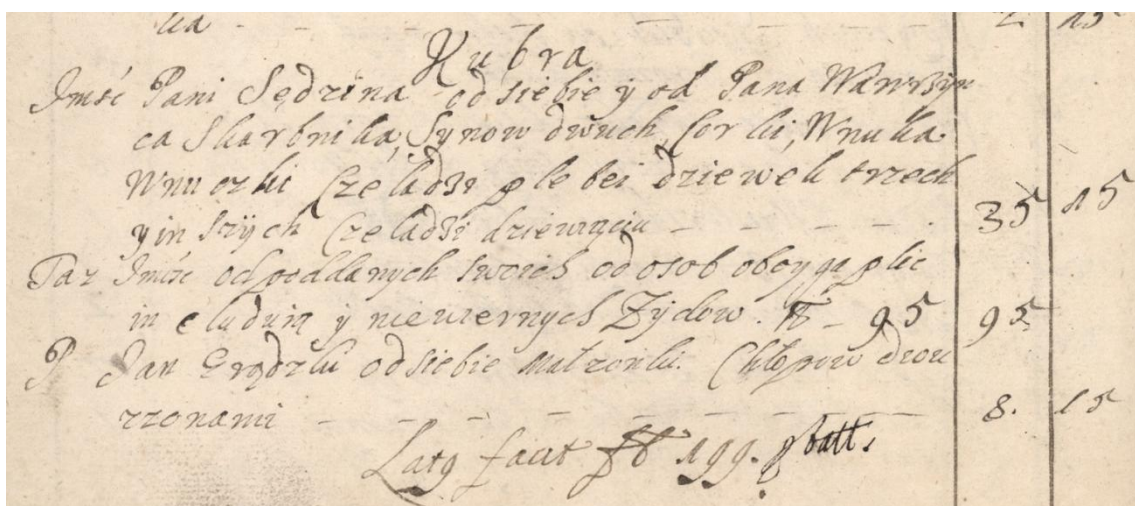 ka - - - - - - 2 15
Kubra
Jmść Pani Sędzina od siebie y od Pana Wawrzyn
ca Skarbnika, Synow dwuch, Corki, Wnuka
Wnuczki Czeladzi plebei dziewek trzech
y inszych Czeladzi dziewięciu - - - - - 35 15
Taz Jmść od poddanych swoich od osob oboyga plic
in cludując y niewiernych Zydow. fl - 95 95
P Jan Grądzki od siebie Małzonki. Chłopow dwu
zzonami - - - - - - - - 8. 15
Latq facit fl 199.